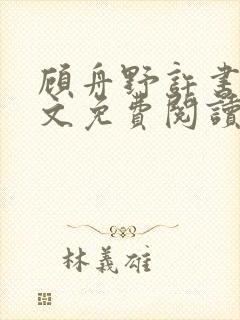 顾舟野許書
文免費閱讀
林義雄